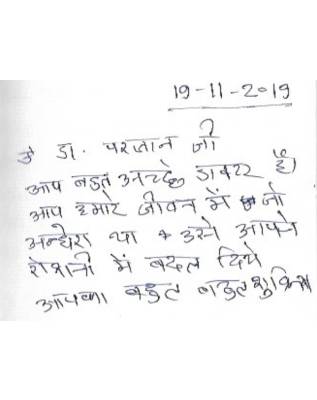 19-11-2019
डा. परजान जी
आप बहुत अच्छे डाक्टर हैं।
आप हमारे जीवन में जो
अन्धेरा था उसे आपने
रोशनी में बदल दिये
आपका बहुत बहुत शुक्रिया